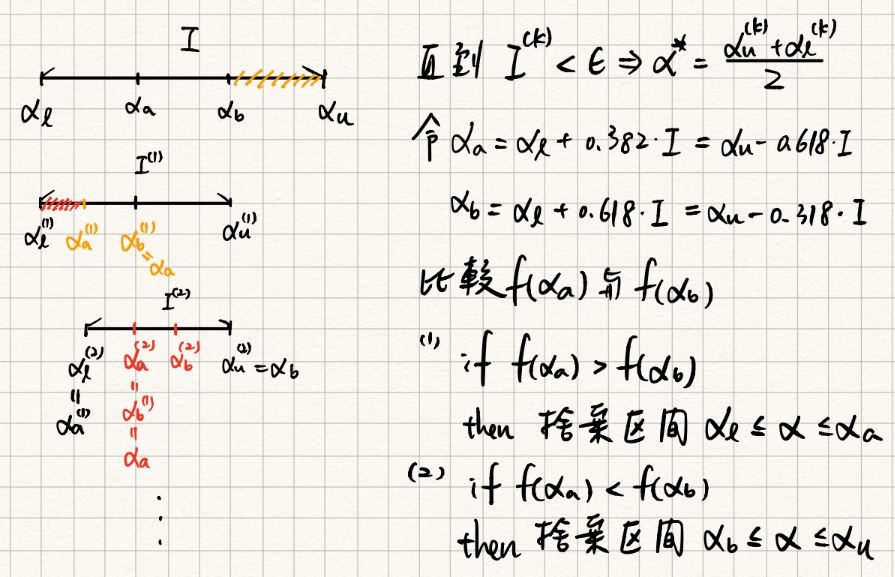 I
αℓ αa αb αu
I⁽¹⁾
αℓ⁽¹⁾ αa⁽¹⁾ αb⁽¹⁾ αu⁽¹⁾
=
αa
I⁽²⁾
αℓ⁽²⁾ αa⁽²⁾ αb⁽²⁾ αu⁽²⁾ = αb
= =
αa⁽¹⁾ αb⁽¹⁾
=
αa
⋮
直到 I⁽ᵏ⁾ < ϵ ⇒ α* = (αu⁽ᵏ⁾ + αℓ⁽ᵏ⁾) / 2
令 αa = αℓ + 0.382·I = αu - 0.618·I
αb = αℓ + 0.618·I = αu - 0.318·I
比較 f(αa) 与 f(αb)
(1) if f(αa) > f(αb)
then 捨棄区间 αℓ ≤ α ≤ αa
(2) if f(αa) < f(αb)
then 捨棄区间 αb ≤ α ≤ αu